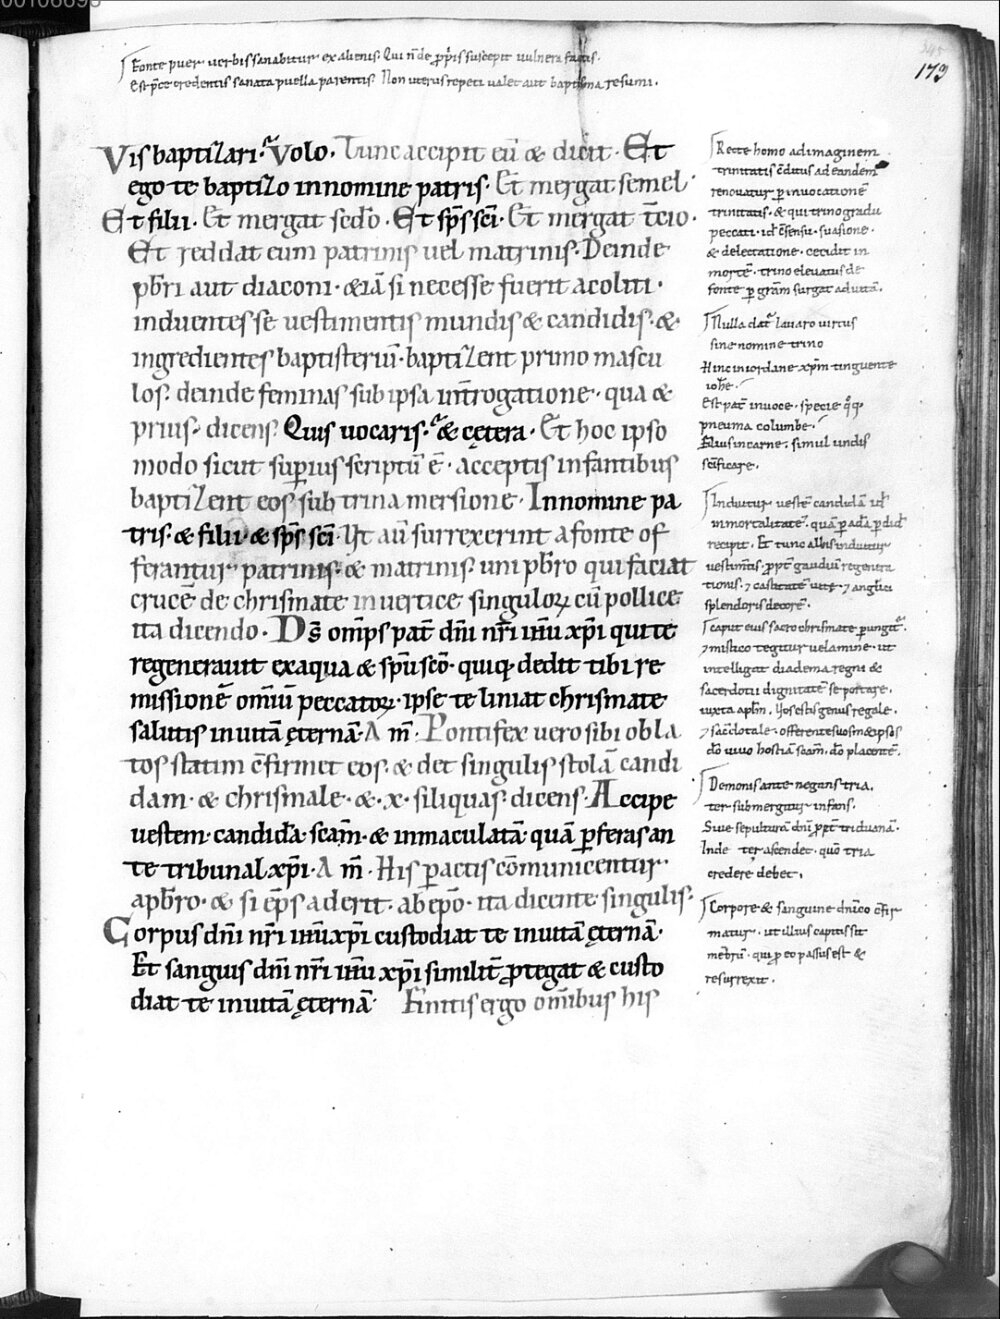 00106695
173
Fonte puer uerbis sanabitur ex alienis. Qui n̄ de p̄pͥis suscepit uulnera factis.
Est p̄ce credentis sanata puella parentis. Non uterus repeti ualet aut baptisma resumi.
Vis baptizari? Volo. Tunc accipit eū & dicit. Et
ego te baptizo in nomine patris. Et mergat semel.
Et filii. Et mergat sedo. Et sp̄s sc̄i. Et mergat t̄cio.
Et reddat eum patrinis uel matrinis. Deinde
pb̄ri aut diaconi. & iā si necesse fuerit acoliti.
induentes se uestimentis mundis & candidis. &
ingredientes baptisteriū. baptizent primo mascu
los. deinde feminas sub ipsa int̄rogatione. qua &
prius. dicens. Quis uocaris? & cętera. Et hoc ipso
modo sicut sup̄ius scriptū ē. acceptis infantibus
baptizent eos sub trina mersione. In nomine pa
tris. & filii. & sp̄s sc̄i. Ut aū surrexerint a fonte of
ferantur patrinis. & matrinis. uni pb̄ro qui faciat
crucē de chrismate in uertice singuloꝝ cū pollice
ita dicendo. Ds̄ omp̄s pat̄ dn̄i nr̄i ih̄u xp̄i qui te
regenerauit ex aqua & sp̄u sc̄o. quiqꝫ dedit tibi re
missionē omīū peccatoꝝ. ipse te liniat chrismate
salutis in uitā ęternā. A m̄. Pontifex uero sibi obla
tos statim c̄firmet eos. & det singulis stolā candi
dam. & chrismale. &. x. siliquas. dicens. Accipe
uestem. candidā. scām. & inmaculatā. quā ꝑferas an
te tribunal xp̄i. A m̄. His ꝑactis cōmunicentur
a pb̄ro. & si ep̄s aderit. ab ep̄o. ita dicente singulis.
Corpus dn̄i nr̄i ih̄u xp̄i custodiat te in uitā ęternā.
Et sanguis dn̄i nr̄i ih̄u xp̄i similit̄ ꝓtegat & custo
diat te in uitā ęternā. Finitis ergo omībus his
Recte homo ad imaginem
trinitatis c̄ditus ad eandem
renouatur ꝑ inuocationē
trinitatis. & qui trino gradu
peccati. id c̄sensu. suasione.
& delectatione. cecidit in
mortē. trino eleuatus de
fonte ꝑ grām surgat ad uitā.
Nulla dat̄ lauacro uirtus
sine nomine trino
Hinc in iordane xp̄m tinguente
ioh̄e.
Est pat̄ in uoce. specie q̄qꝫ
pneuma columbe.
Filius in carne. simul undis
sc̄ificare.
Induitur uestē candidā id
inmortalitatē. quā ꝑ adā ꝑdid̄
recipit. Et tunc albis induitur
uestim̄tis. ꝓpt̄ gaudiū regenera
tionis. ⁊ castitatē uitę. ⁊ anglici
splendoris decorē.
Caput eius sacro chrismate ꝑungit̄.
⁊ mistico tegitur uelamine. ut
intelligat diadema regni &
sacerdotii dignitatē se portare.
iuxta aplm̄. Uos estis genus regale.
⁊ sac̄dotale. offerentes uosm& ipsos
dō uiuo hostiā scām. dō placentē.
Demonis ante negans tria.
ter submergitur infans.
Siue sepulturā dn̄i ꝓpt̄ triduanā.
Inde ter ascendet. quō tria
credere debet.
Corpore & sanguine dn̄ico c̄fir
matur. ut illius capitis sit
mēbrū. qui ꝓ eo passus est &
resurrexit.